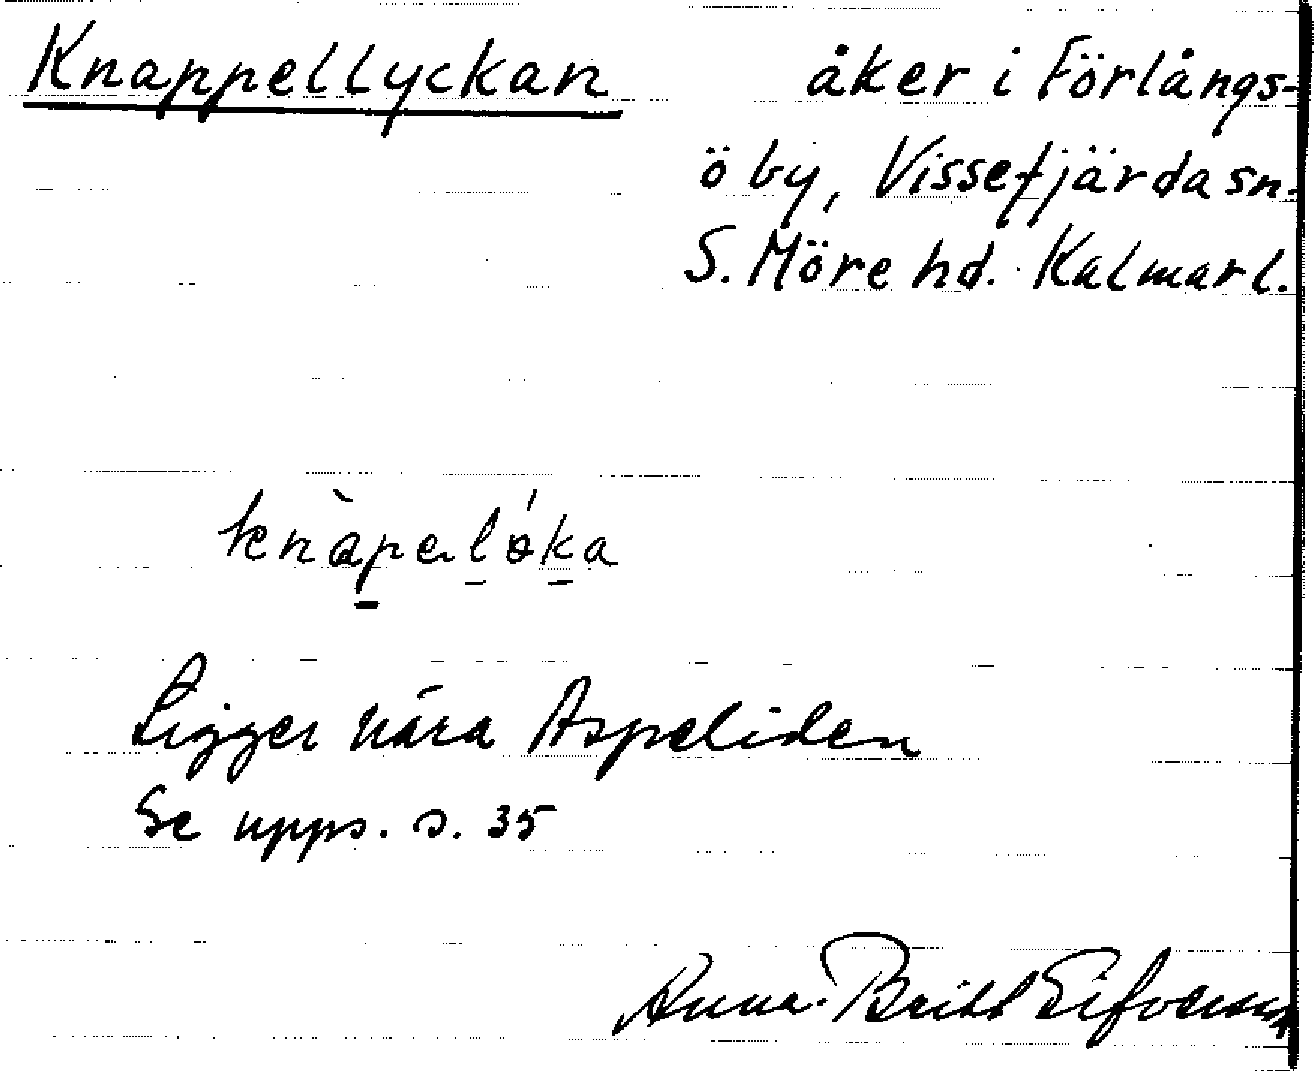 Knappellyckan åker i Förlångs-
ö by, Vissefjärda sn.
S. Möre hd. Kalmar l.
Ligger nära Aspeliden
Se upps. s. 35
Anna-Britt